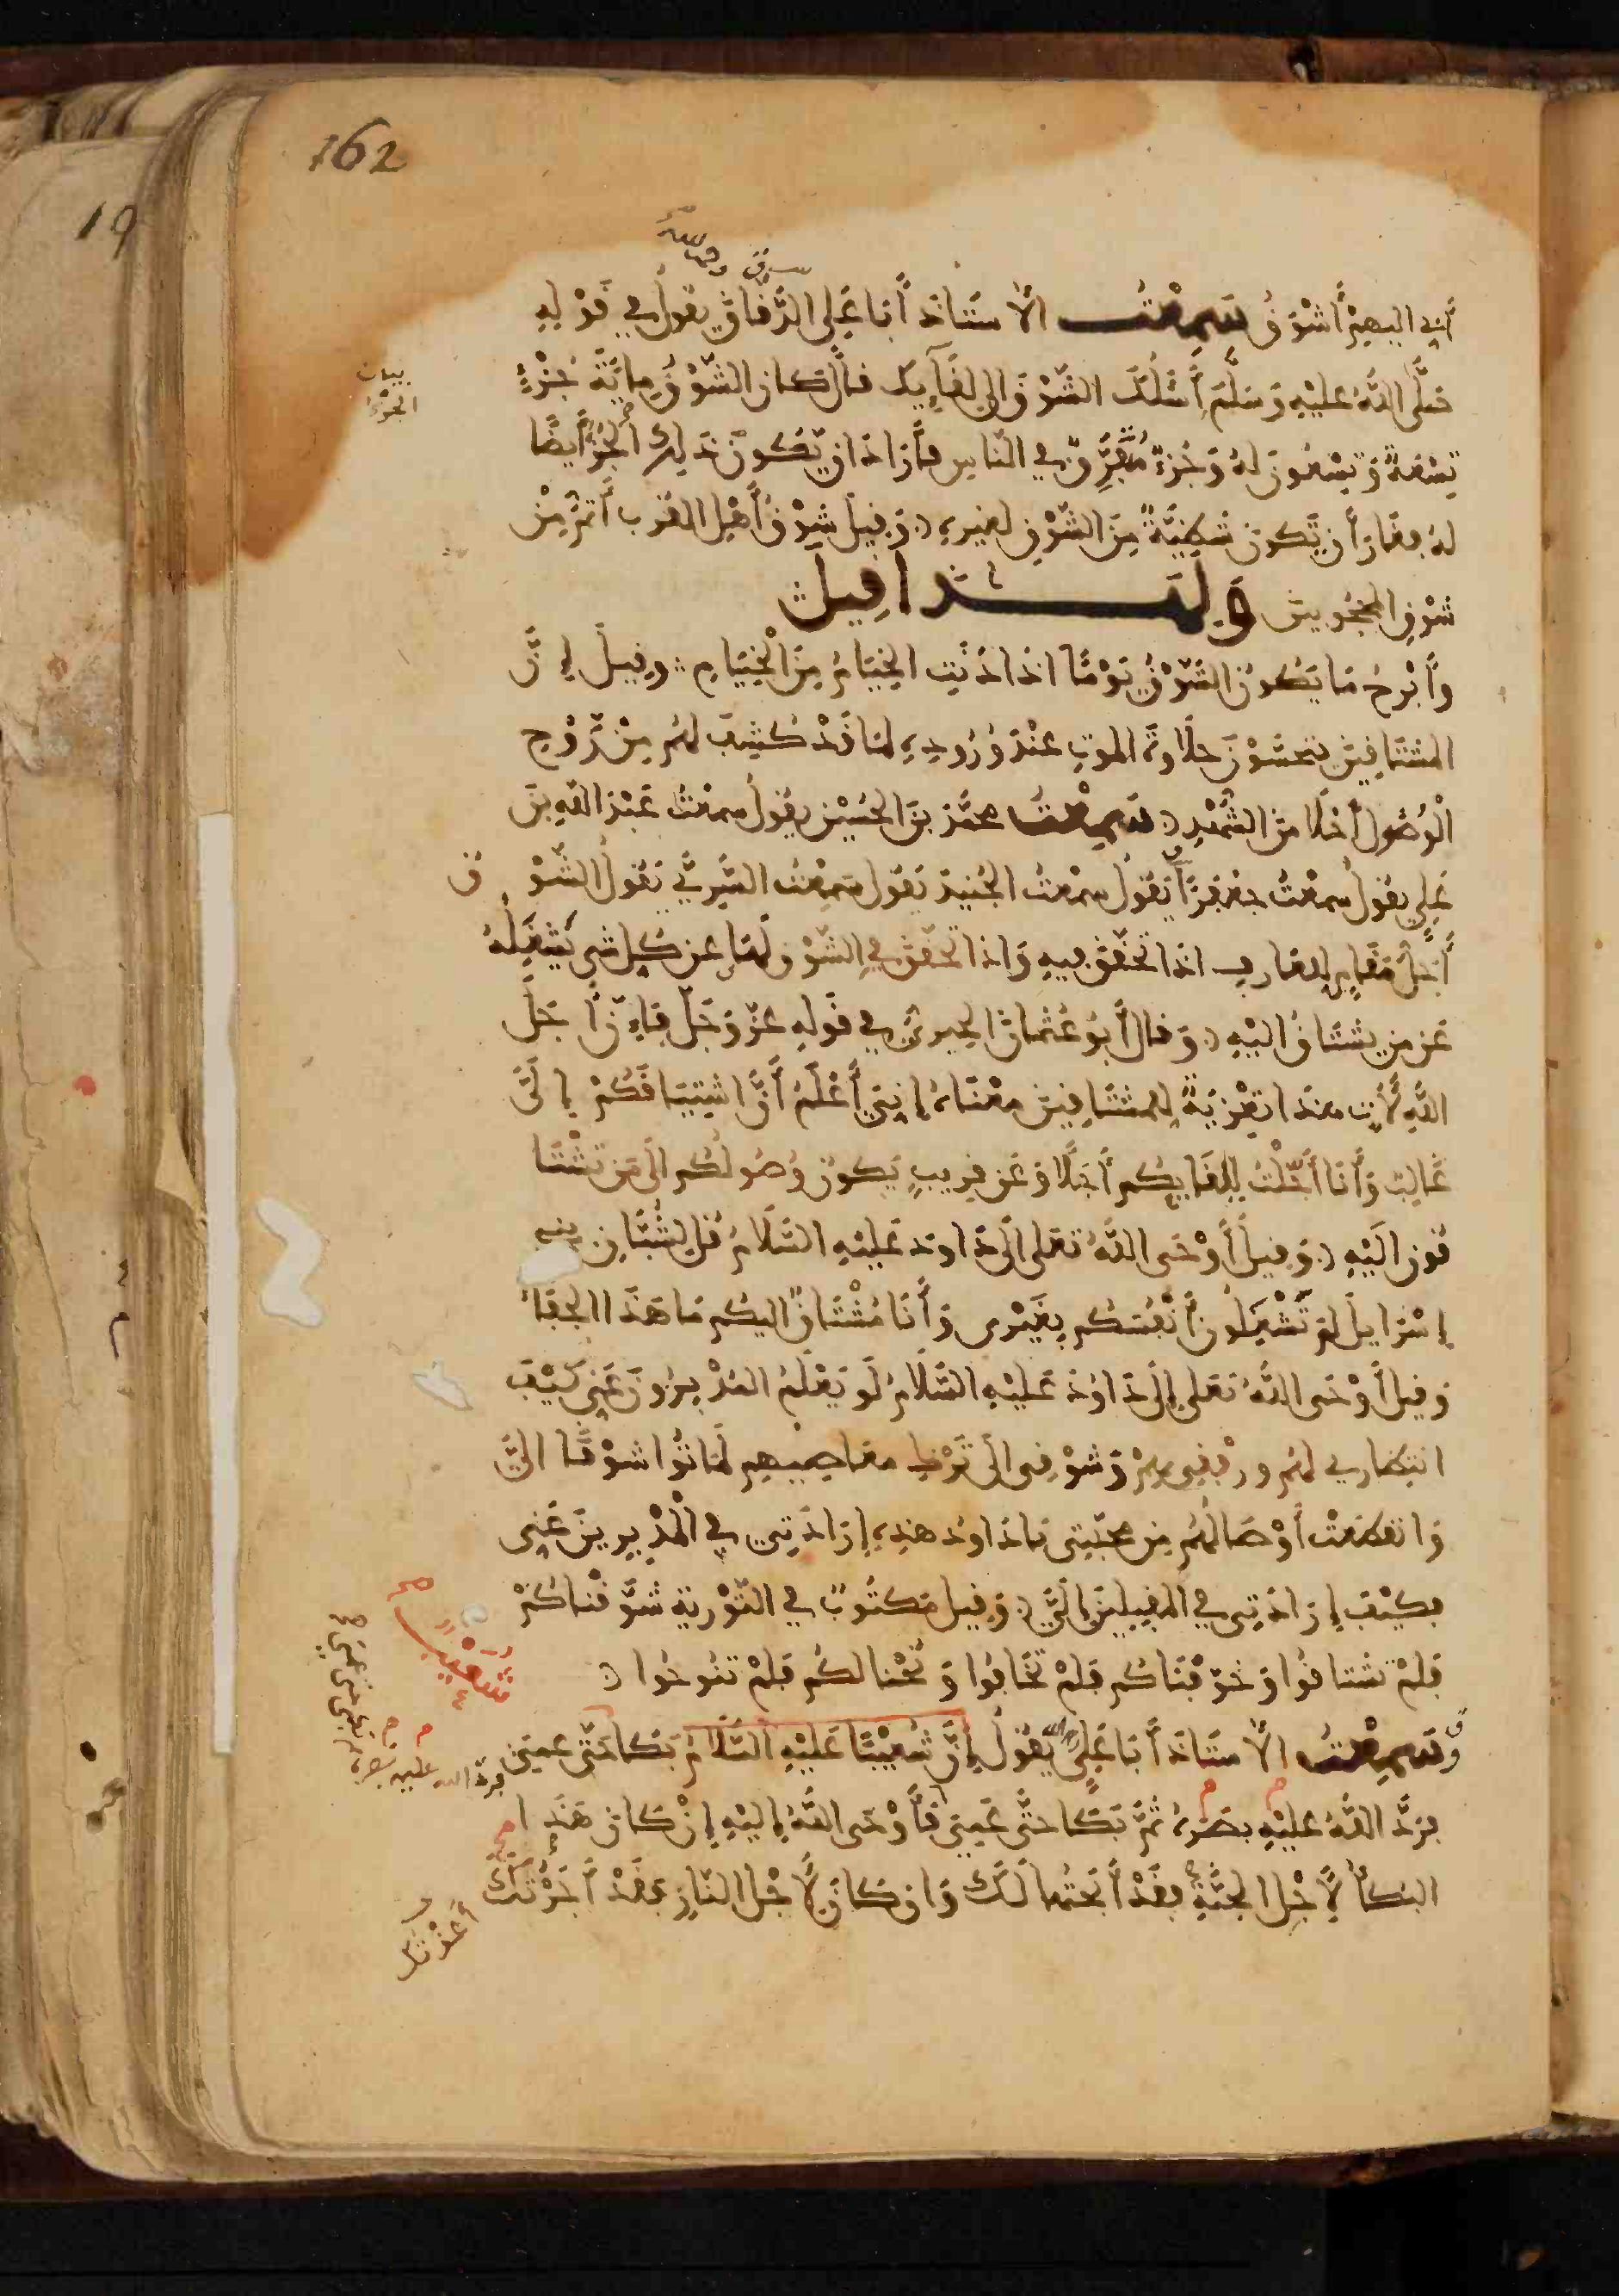 162
19
أني اليهم أشوق سمعت الأستاذ أبا علي الدقاق يقول في قوله
بيان
الجزء
صلى الله عليه وسلم أسئلك الشوق الى لقآيك قال كان الشوق مائة جزء
تسعة وتسعون له وجزء متفرق في الناس فأراد ان يكون ذلك الجزء أيضا
له فغار أن تكون شظية من الشوق لغيره وقيل شوق أهل القرب أتم من
شوق المحجوبين ولهذا قيل
وأبرح ما يكون الشوق يوما اذا دنت الخيام من الخيام وقيل إن
المشتاقين يتحسون حلاوة الموت عند وروده لما قد كشف لهم من روح
الوصول أحلا من الشهد سمعت محمد بن الحسين يقول سمعت عبد الله بن
علي يقول سمعت جعفرا يقول سمعت الجنيد يقول سمعت السري يقول الشوق
أجل مقام للعارف اذا تحقق فيه واذا تحقق في الشوق لها عن كل شي يشغله
عن من يشتاق اليه وقال أبو عثمان الحيري في قوله عز وجل فإن أجل
الله لأت هذا تعزية للمشتاقين معناه إني أعلم أن اشتياقكم إلي
غالب وأنا أجلت للقايكم أجلا وعن قريب يكون وصولكم الى من تشتا
قون اليه وقيل أوحى الله تعلى الى داود عليه السلام قل لشبان بني
إسرايل لم تشغلون أنفسكم بغيري وأنا مشتاق اليكم ما هذا الجفا
وقيل أوحى الله تعلى إلى داود عليه السلام لو يعلم المدبرون عني كيف
انتظاري لهم ورفقي بهم وشوقي الى ترك معاصيهم لماتوا شوقا الي
وانقطعت أوصالهم من محبتي يا داود هذه إرادتي في المدبرين عني
فكيف إرادتي في المقبلين إلي وقيل مكتوب في التورية شوقناكم
فلم تشتاقوا وخوفناكم فلم تخافوا ونحنا لكم فلم تنوحوا
شعيب
وسمعت الأستاذ أبا علي يقول إن شعيبا عليه السلام بكا حتى عمي
فرد الله عليه بصره ثم بكا حتى عمي فأوحى الله إليه إن كان هذا
البكا لأجل الجنة فقد أبحتها لك وان كان لأجل النار فقد أجرتك